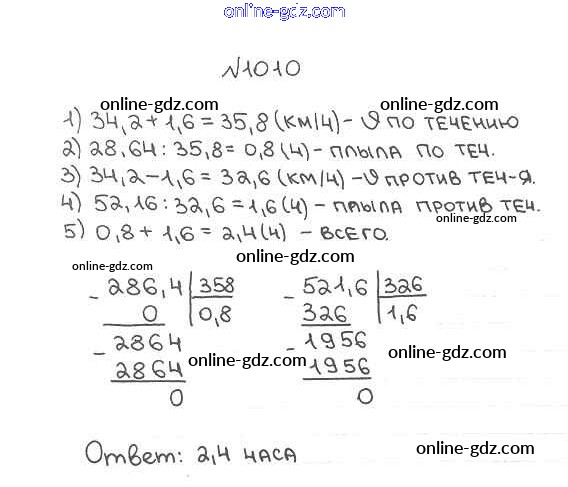 online-gdz.com
№1010
online-gdz.com online-gdz.com
1) 34,2+1,6=35,8(км/ч)-υ по течению
2) 28,64:35,8=0,8(ч)-плыла по теч.
3) 34,2-1,6=32,6(км/ч)-υ против теч-я.
4) 52,16:32,6=1,6(ч)-плыла против теч.
online-gdz.com
5) 0,8+1,6=2,4(ч) - всего.
online-gdz.com online-gdz.com online-gdz.com
- 286,4 358
0 0,8
- 2864
2864
0
- 521,6 326
326 1,6
- 1956
1956
0
online-gdz.com online-gdz.com
Ответ: 2,4 часа
online-gdz.com